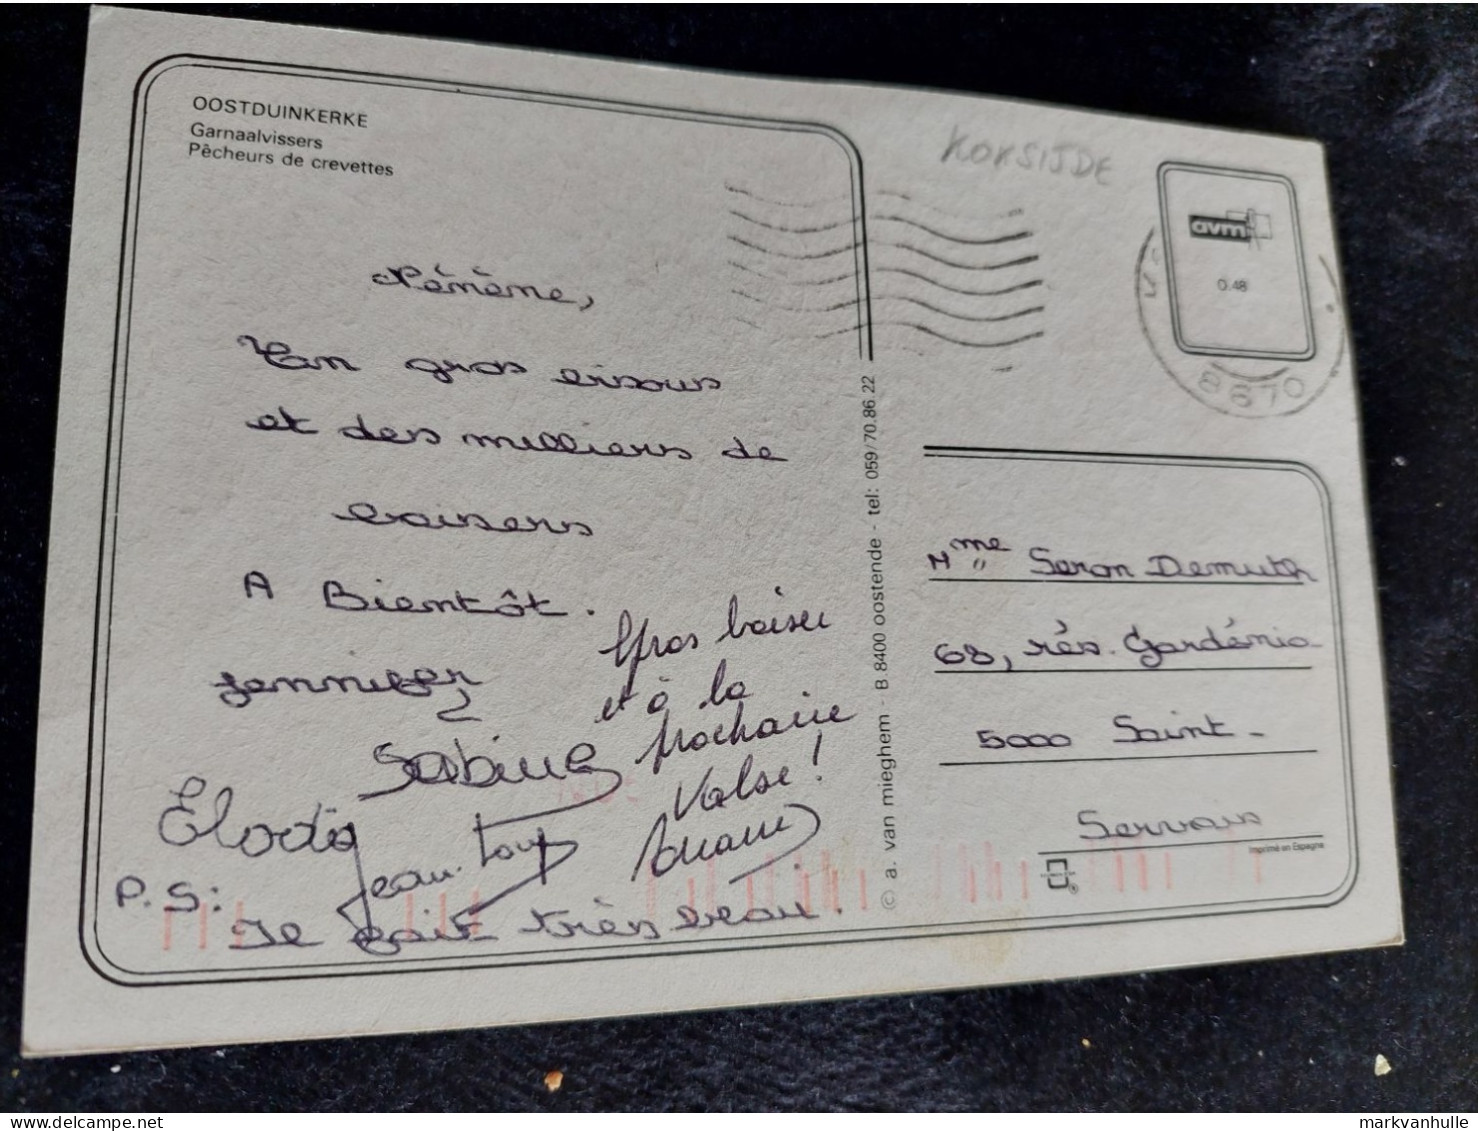 OOSTDUINKERKE
Garnaalvissers
Pêcheurs de crevettes
KOKSIJDE
avm
0.48
8670
Mémème,
Un gros bisous
et des milliers de
baisers
A Bientôt.
Jennifer
Gros baiser
et à la
prochaine
Valse!
Sabine
Elodie
Jean-Lou
P.S:
Il fait très beau.
© a. van mieghem - B 8400 oostende - tel: 059/70.86.22
Mme Seron Demuth
68, rés. Gardénia
5000 Saint-
Servais
Imprimé en Espagne
markvanhulle